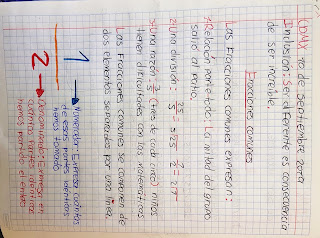 CDMX 10 de septiembre 2019
Inclusión: Ser diferente es consecuencia
de ser increíble.
Fracciones comunes
Las fracciones comunes expresan:
1) Relación parte todo: La mitad del grupo
salió al patio.
2) Una división:
3) Una razón: 3/5 (tres de cada cinco) niños
tienen dificultades con las matemáticas
Las fracciones comunes se componen de
dos elementos separados por una línea.
1 → Numerador: Expresa cuántas
de esas partes idénticas
hemos tomado.
2 → Denominador: Expresa en
cuántas partes idénticas
hemos partido el entero